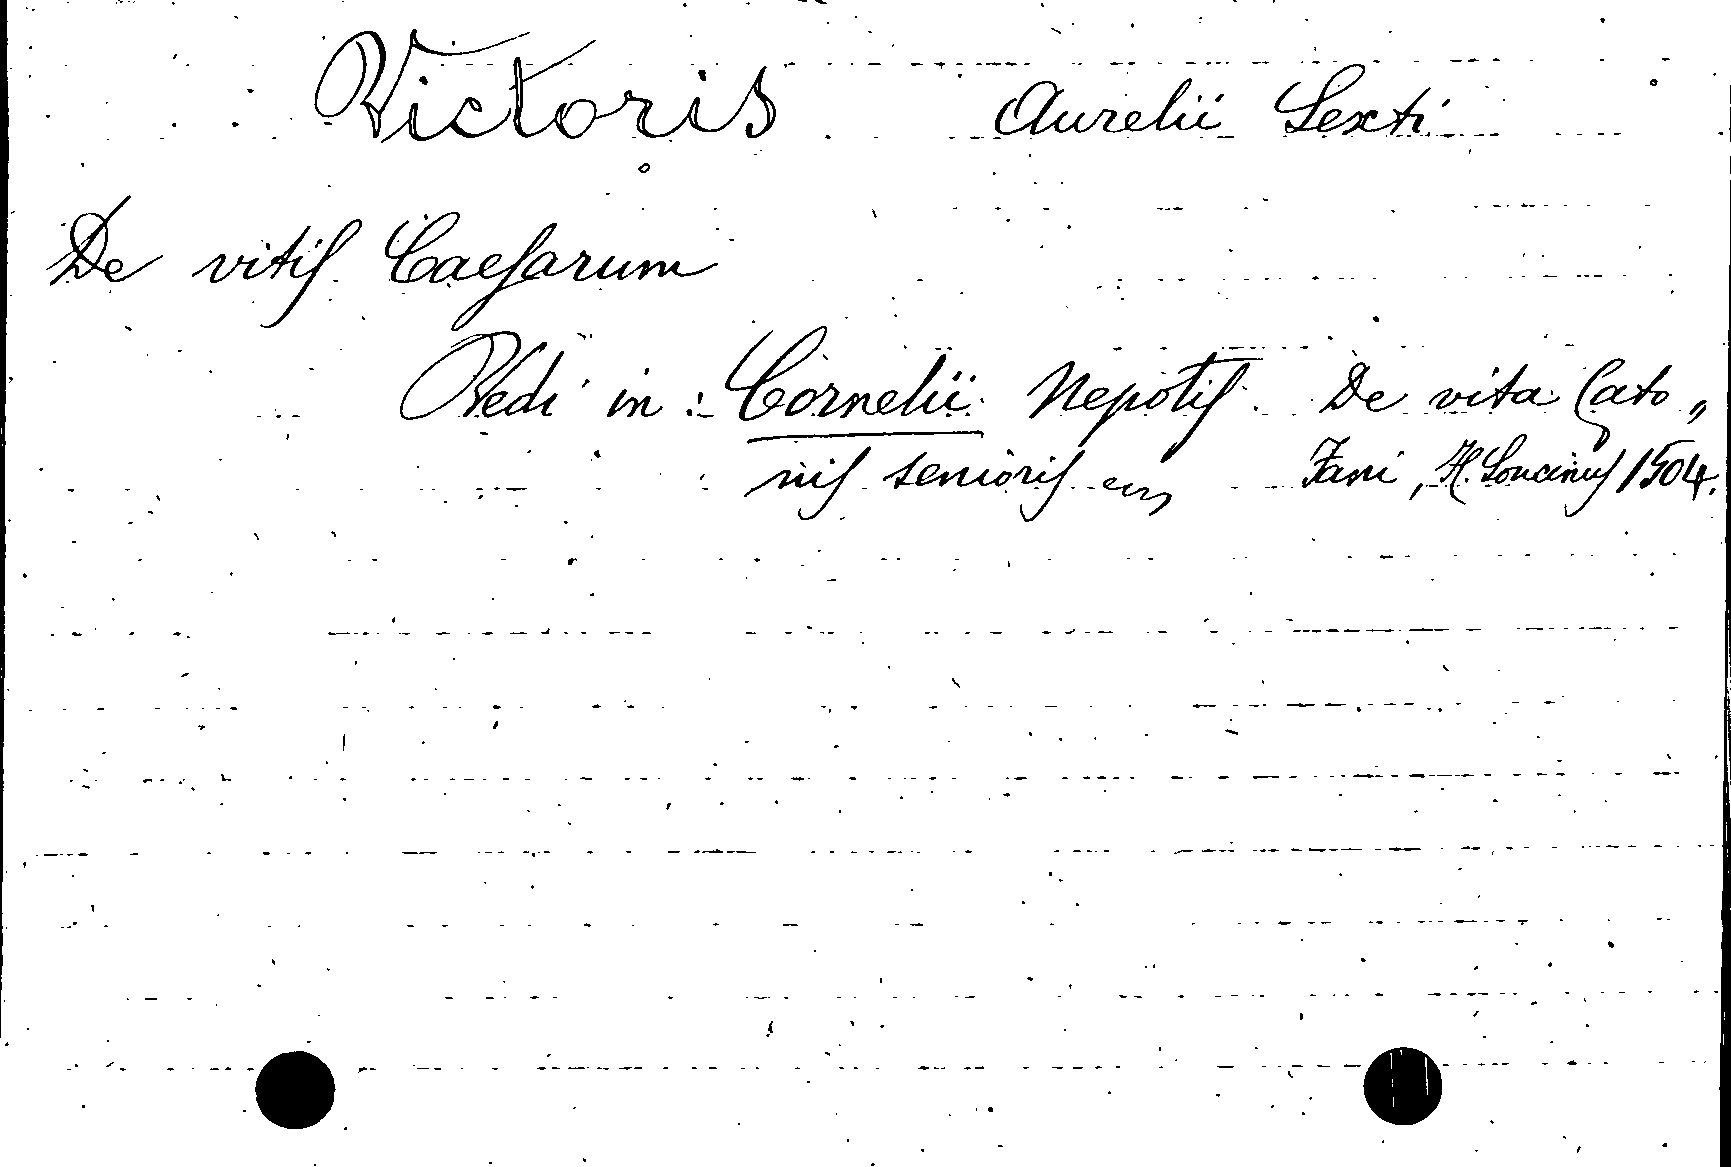 Victoris Aurelii Sexti
De vitiſ Caeſarum
Vedi in: Cornelii Nepotiſ De vita Cato„
niſ senioriſ Fani, H. Soncinuſ 1504.